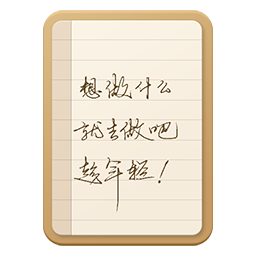 想做什么
就去做吧
趁年轻！